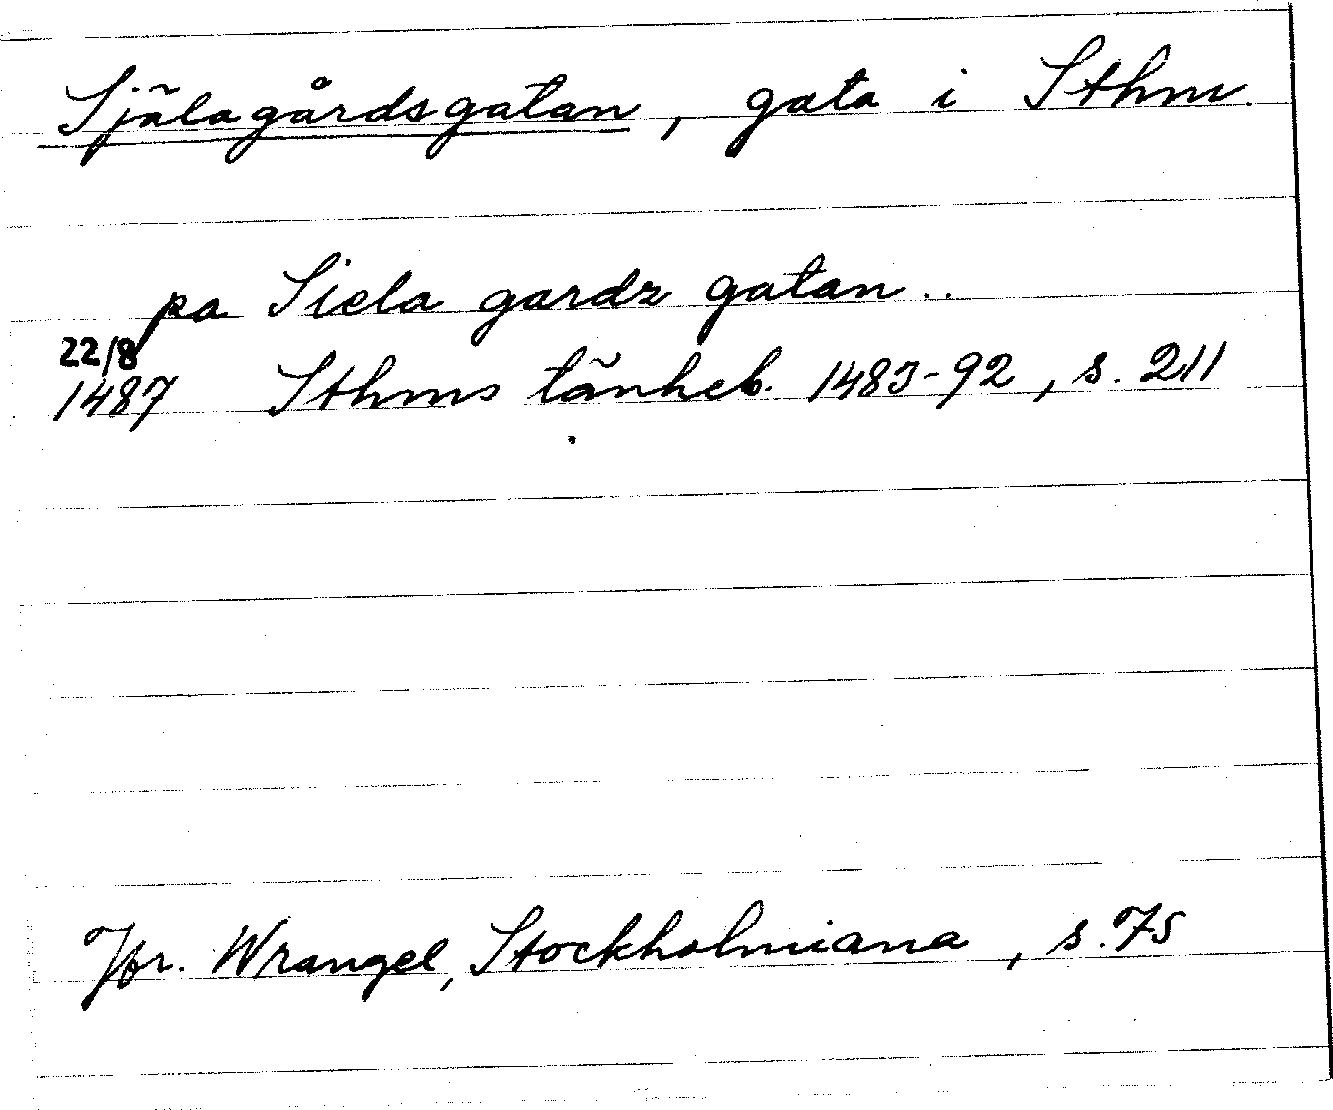 Själagårdsgatan, gata i Sthm.
pa Siela gardz gatan..
22/8
1487 Sthms tänkeb. 1483-92, s. 211
Jfr. Wrangel, Stockholmiana, s. 75